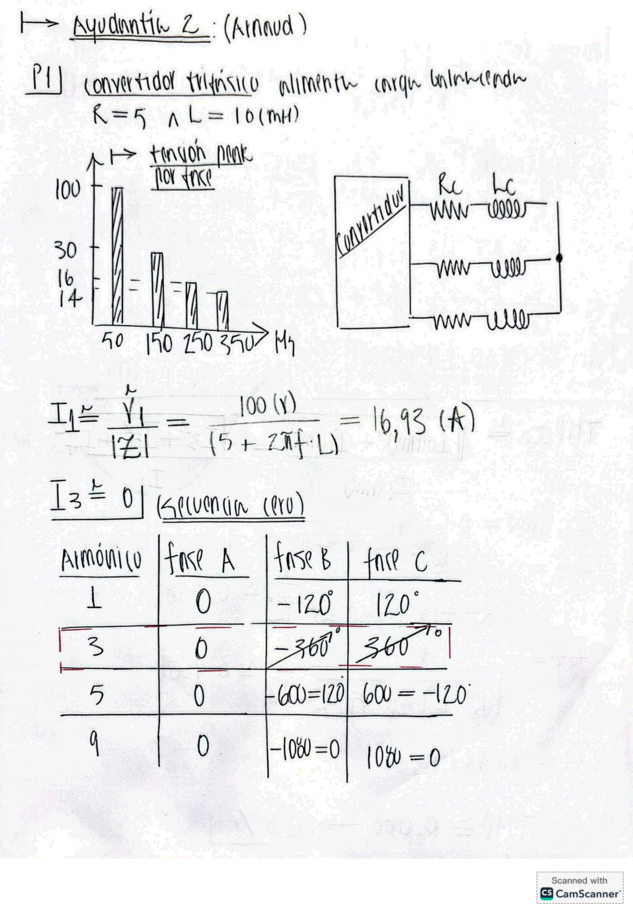 ↦ Ayudantía 2: (Arnaud)
P1] convertidor trifásico alimenta carga balanceada
R = 5 ∧ L = 10 (mH)
↦ tensión peak
por fase
100
30
16
14
50 150 250 350 Hz
convertidor
Rc Lc
Î1 = V̂1 / |Z| = 100 (V) / |5 + 2πf·L| = 16,93 (A)
Î3 = 0 (secuencia cero)
Armónico fase A fase B fase C
1 0 -120° 120°
3 0 -360°→0 360→0
5 0 -600=120° 600 = -120°
9 0 -1080=0 1080=0
Scanned with
CS CamScanner